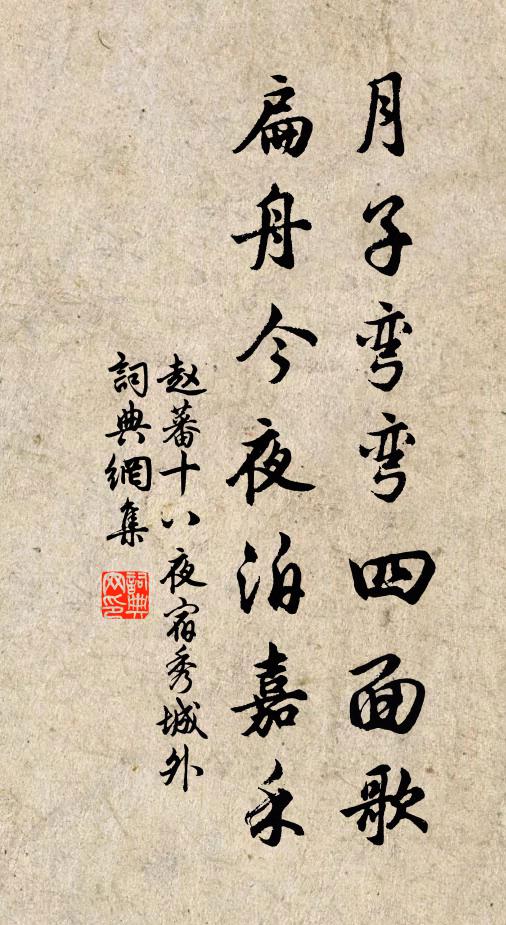 月子弯弯四面歌
扁舟今夜泊嘉禾
赵蕃十八夜宿秀城外
詞典網集
詞典网印